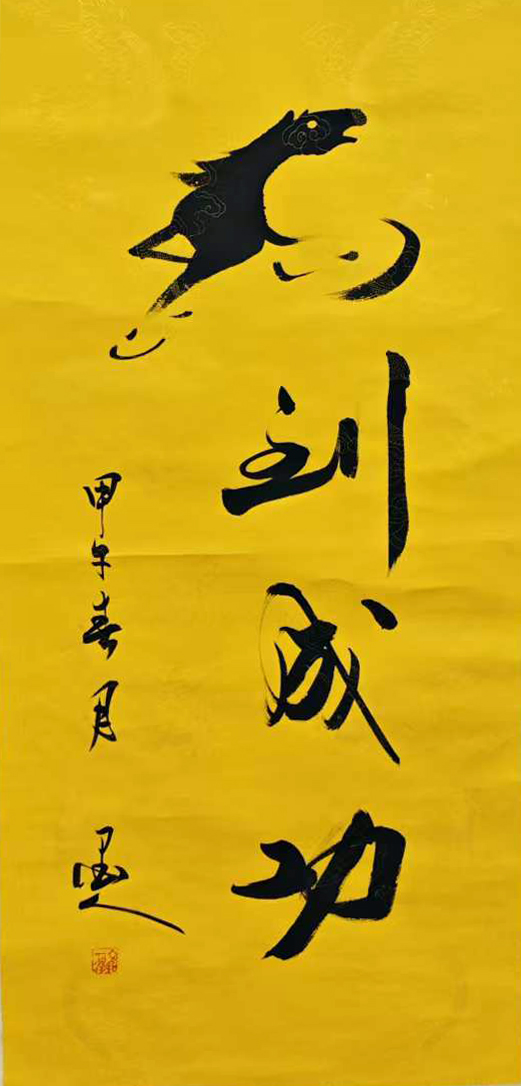 马到成功
甲午春月